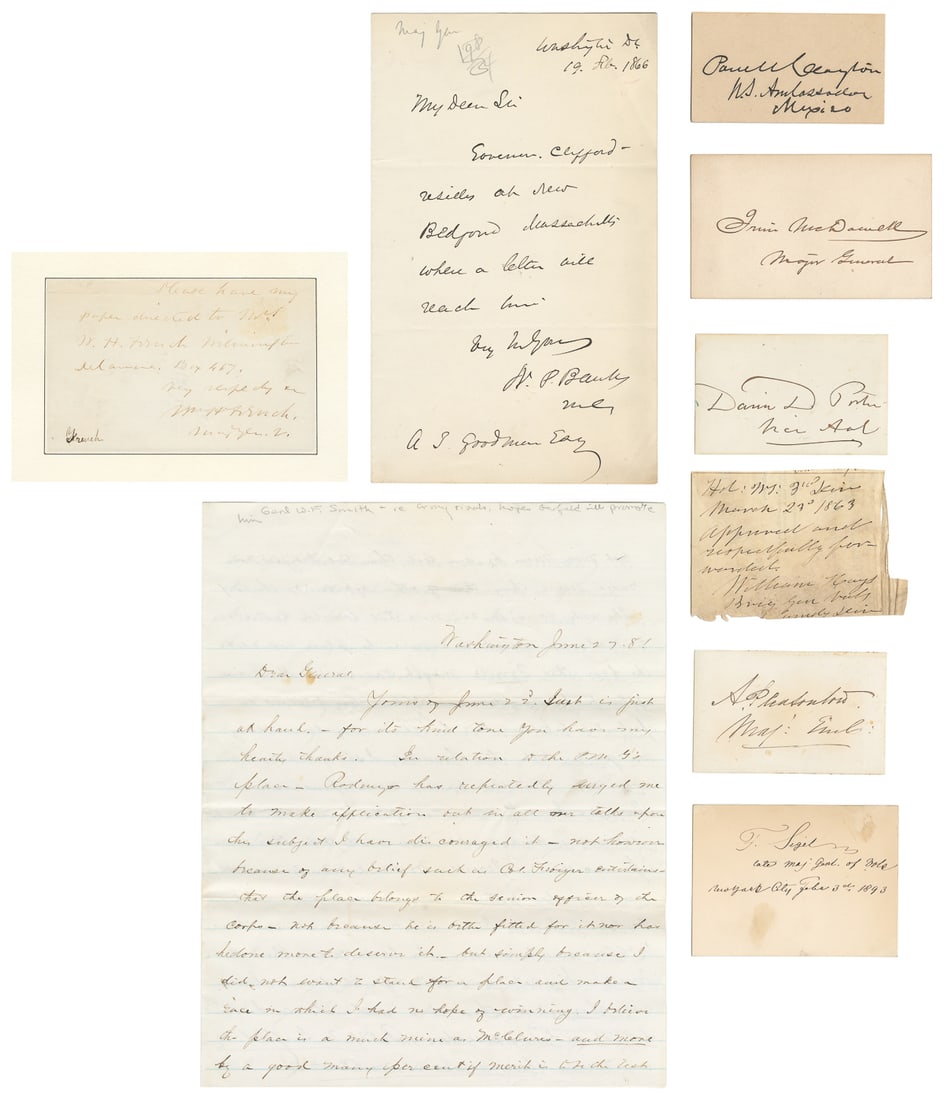 Please have my
paper directed to Mrs
W. H. French Wilmington
Delaware. Box 467.
Very respectly
Wm H French.
Maj Gen. V.
French
Maj Gen
Washington DC
19. Feb. 1866
My Dear Sir
Governor. Clifford
resides at New
Bedford Massachusetts
where a letter will
reach him
Very truly yours
N. P. Banks
M.C.
A. S. Goodman Esq
Powell Clayton
U.S. Ambassador
Mexico
Irvin McDowell
Major General
David D Porter
Vice Adl
March 23d 1863
Approved and
respectfully for-
warded.
William Hays
Brig Gen Vols
A. Pleasonton.
Maj: Genl:
F. Sigel
late Maj Genl. of Vols
New York City Febr 3d. 1893
Genl W.F. Smith - re
him
Washington June 27. 81
Dear General
Yours of June 23d. Inst is just
at hand. - for its kind tone you have my
hearty thanks. In relation to the P.M. G's
place - Rodney has repeatedly urged me
to make application but in all our talks upon
this subject I have discouraged it - not however
because of any belief such as Col. entertains -
that the place belongs to the senior officer of the
corps - not because he is better fitted for it nor has
he done more to deserve it - but simply because I
did not want to start for a place and make a
race in which I had no hope of winning. I believe
the place is as much mine as McClure's - and more
by a good many per cent if merit is to be the test